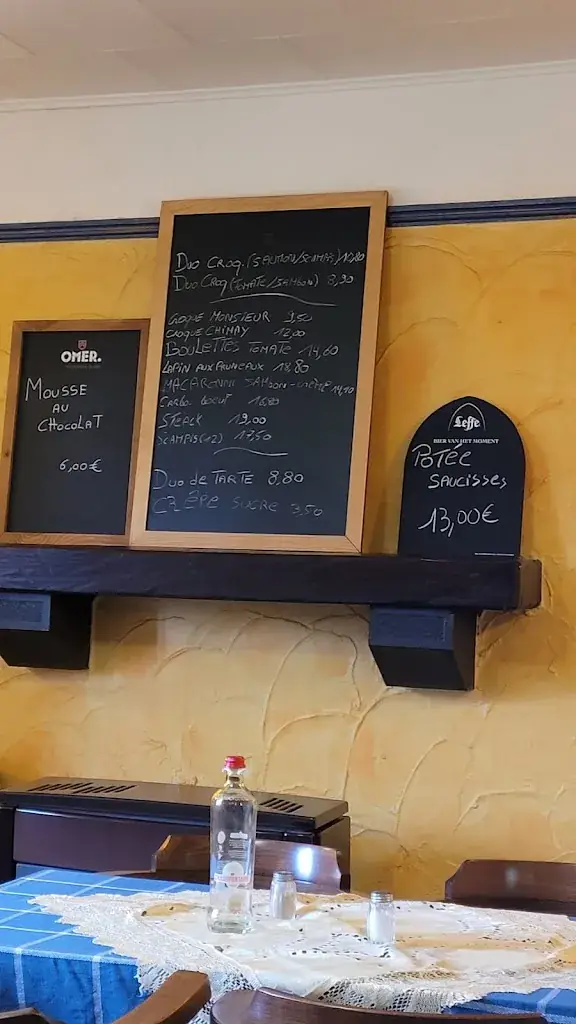 OMER.
MOUSSE
AU
CHOCOLAT
6,00€
DUO CROQ. (SAUMON/SCAMPIS)
DUO CROQ (TOMATE/JAMBON) 8,90
CROQUE MONSIEUR 9,50
CROQUE CHIMAY 12,00
BOULETTES TOMATE 14,60
LAPIN AUX PRUNEAUX 18,80
MACARONI JAMBON-CRÈME 14,10
CARBO. BOEUF 16,80
STEACK 19,00
SCAMPIS (12) 17,50
DUO de TARTE 8,80
CRÊPE SUCRE 3,50
Leffe
BIER VAN HET MOMENT
POTÉE
SAUCISSES
13,00€